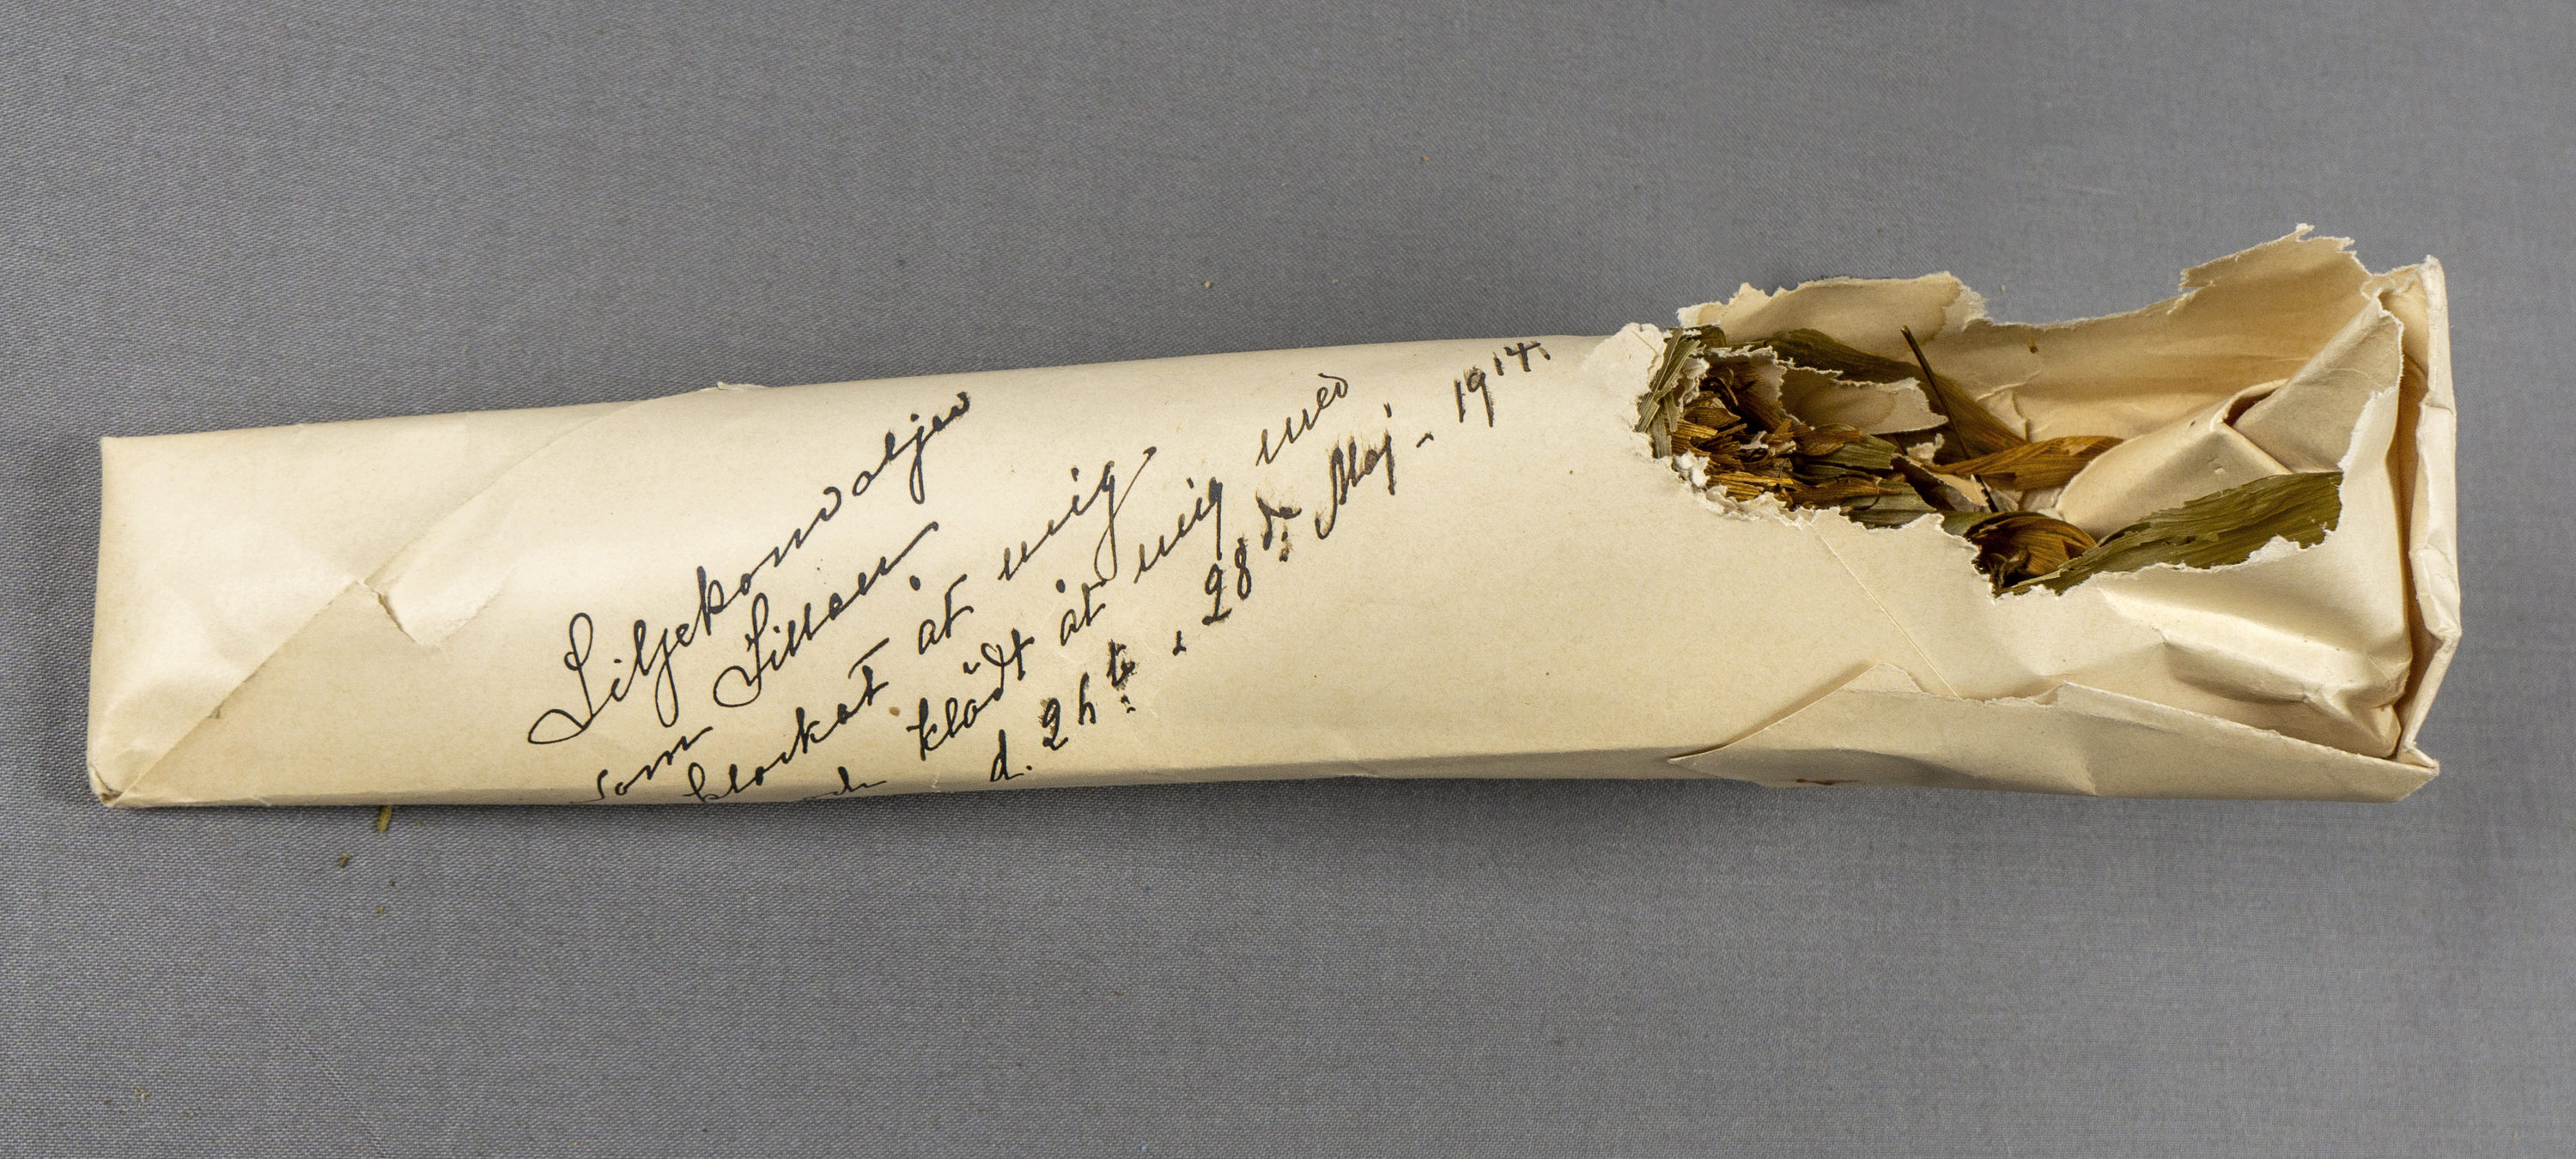 Liljekonvaljer
som Lillan
plockat åt mig
och klädt åt mig med
d. 28de Maj - 1914.